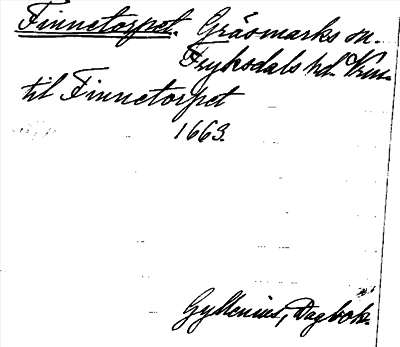 Finnetorpet. Gräsmarks sn.
Fryksdals hd. Vrm.
til Finnetorpet
1663.
Gyllenius, Dagbok.